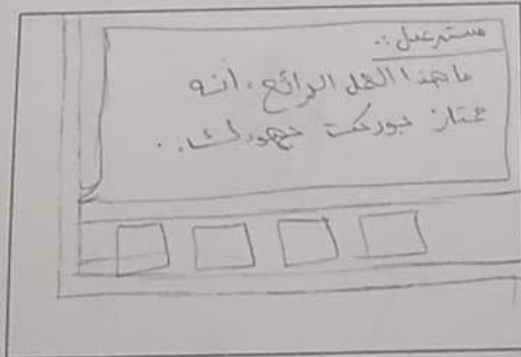 مستر عسل :.
ما هذا العمل الرائع ، انه
ممتاز بوركت جهودك ..